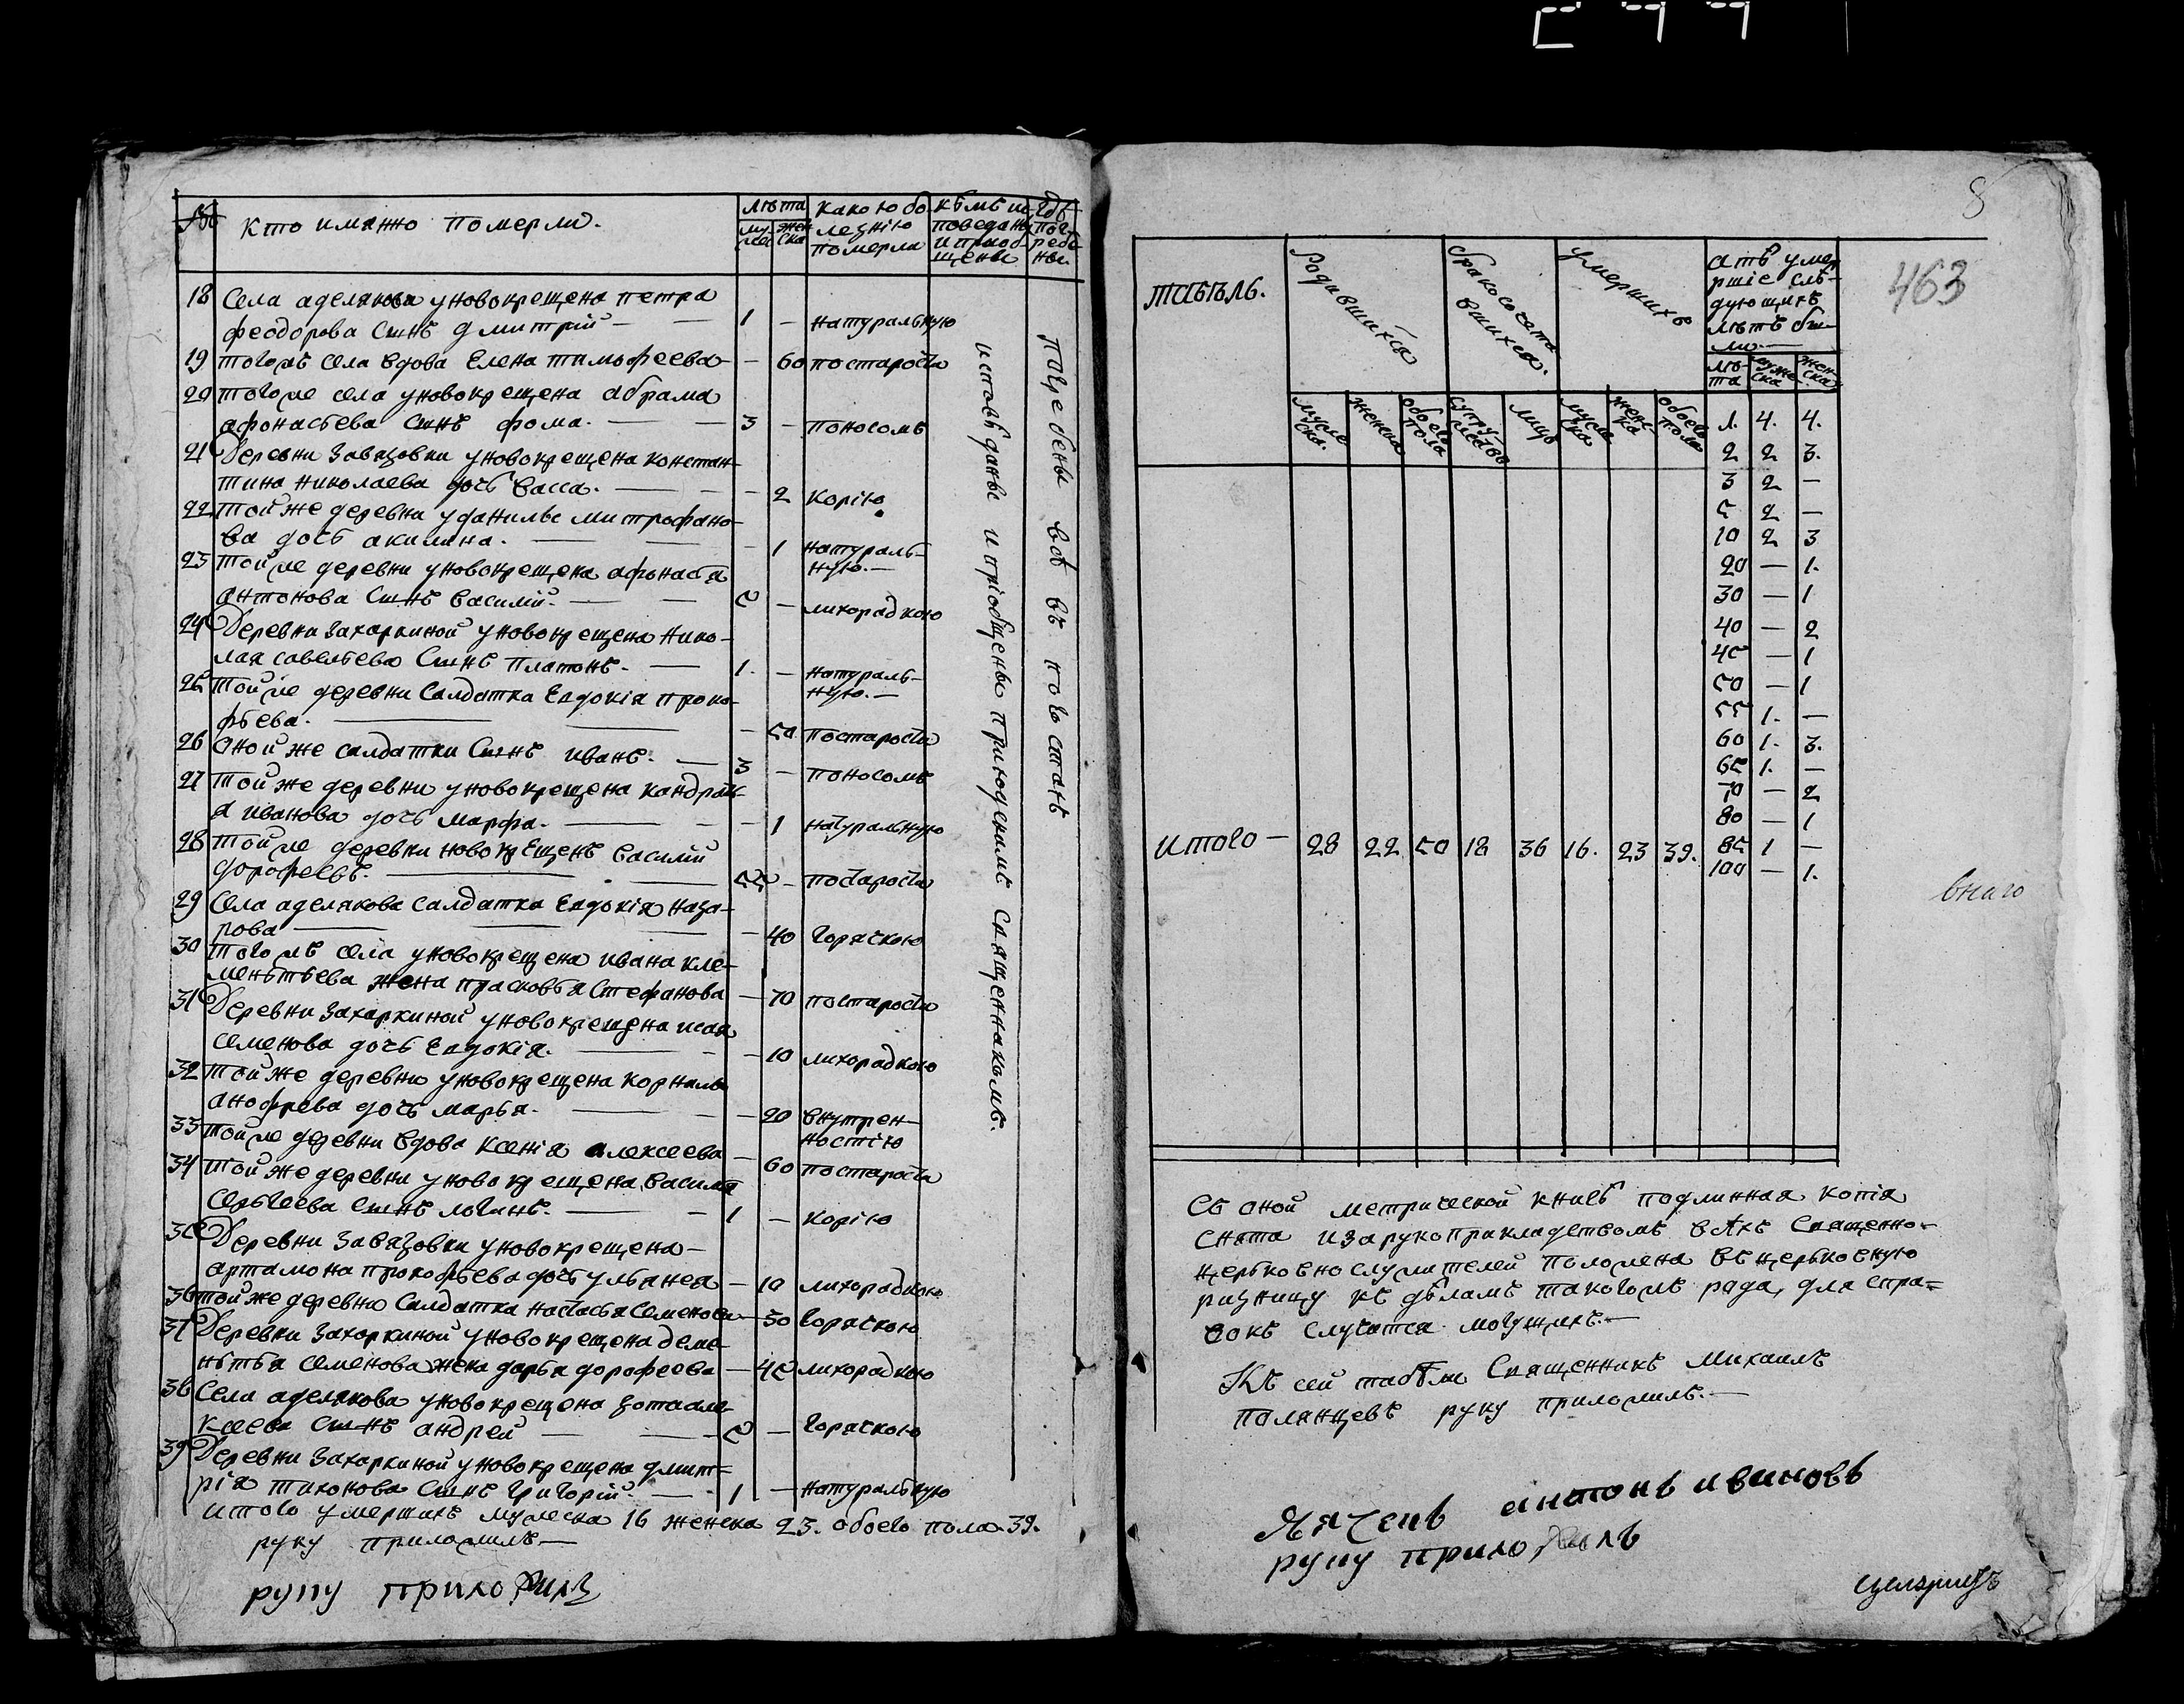 №
кто иманно померли.
лѣта
муж
жен
ска
какою бо
лезнію
померли
кѣмъ ис
поведаны
и приоб
щены
гдѣ
пог
ребе
ны
18 Села аделякова у новокрещена петра
феодорова сынъ дмитрій — 1 — натуральную
19 тогожъ села вдова Елена тимофеева — 60 по старости
20 тогоже села у новокрещена абрама
афонасьева сынъ фома. — 3 — поносомъ
21 Деревни Завязовки у новокрещена констан-
тина николаева дочь васса. — 2 корію
22 тойже деревни у данилы митрофано-
ва дочь акилина. — 1 натураль-
ную. —
23 тойже деревни у новокрещена афонасья
антонова сынъ василій. — 5 — лихорадкою
24 Деревни Захаркиной у новокрещена нико-
лая савельева сынъ платонъ. — 1. — натураль-
ную. —
25 тойже деревни салдатка Евдокія проко-
фьева. — 50 по старости
26 оной же салдатки сынъ иванъ. — 3 — поносомъ
27 той же деревни у новокрещена кандрать-
я иванова дочь марфа. — 1 натуральную
28 тойже деревни новокрещенъ василій
дорофеевъ. — 55 — по старости
29 Села аделякова салдатка Евдокія наза-
рова — 40 горячкою
30 тогожъ села у новокрещена ивана кле-
ментьева жена прасковья Стефанова — 70 по старости
31 Деревни Захаркиной у новокрещена исая
семенова дочь Евдокія. — 10 лихорадкою
32 той же деревни у новокрещена корнилы
анофрева дочь марья. — 20 внутрен-
ностію
33 тойже деревни вдова ксенія алексеева — 60 по старости
34 той же деревни у новокрещена василья
сергеева сынъ логинъ. — 1 — корію
35 Деревни Завязовки у новокрещена —
артамона прокофьева дочь ульянея — 10 лихорадкою
36 той же деревни салдатка настасья семенова — 30 горячкою
37 Деревни Захаркиной у новокрещена деме-
нтья семенова жена дарья дорофеева — 45 лихорадкою
38 Села аделякова у новокрещена изота але-
ксеева сынъ андрей — 5 — горячкою
39 Деревни Захаркиной у новокрещена дмит-
рія тихонова сынъ григорій. — 1 — натуральную
итого умершихъ мужеска 16 женска 23. обоего пола. 39.
руку приложилъ —
руку приложилъ
исповѣданы и пріобщены приходскимъ священникомъ.
погребены всѣ въ погостахъ
8
463
табель.
Родившихся
бракосочета
вшихся.
умершихъ
отъ умер
ршіе слѣ-
дующихъ
лѣтъ бы-
ли. —
лѣ-
та
муже
ска
жен-
ска
муже
ска.
женска
обоего
пола
супру
жествъ
лицъ
муже
ска
женс-
ка
обоего
пола
1. 4. 4.
2 2 3.
3 2 —
5 2 —
10 2 3
20 — 1.
30 — 1
40 — 2
45 — 1
50 — 1
55 1. —
60 1. 3.
65 1. —
70 — 2
80 — 1
85 1 —
100 — 1.
итого — 28 22 50 18 36 16. 23 39.
Съ оной метрической книгѣ подлинная копія
снята и за рукоприкладствомъ всѣхъ священно-
церьковнослужителей положена въ церьковную
ризницу къ дѣламъ таковожъ рода, для спра-
вокъ случится могущихъ. —
Къ сей табѣли Священникъ михаилъ
палянцевъ руку приложилъ. —
антонъ ивановъ
руку приложилъ